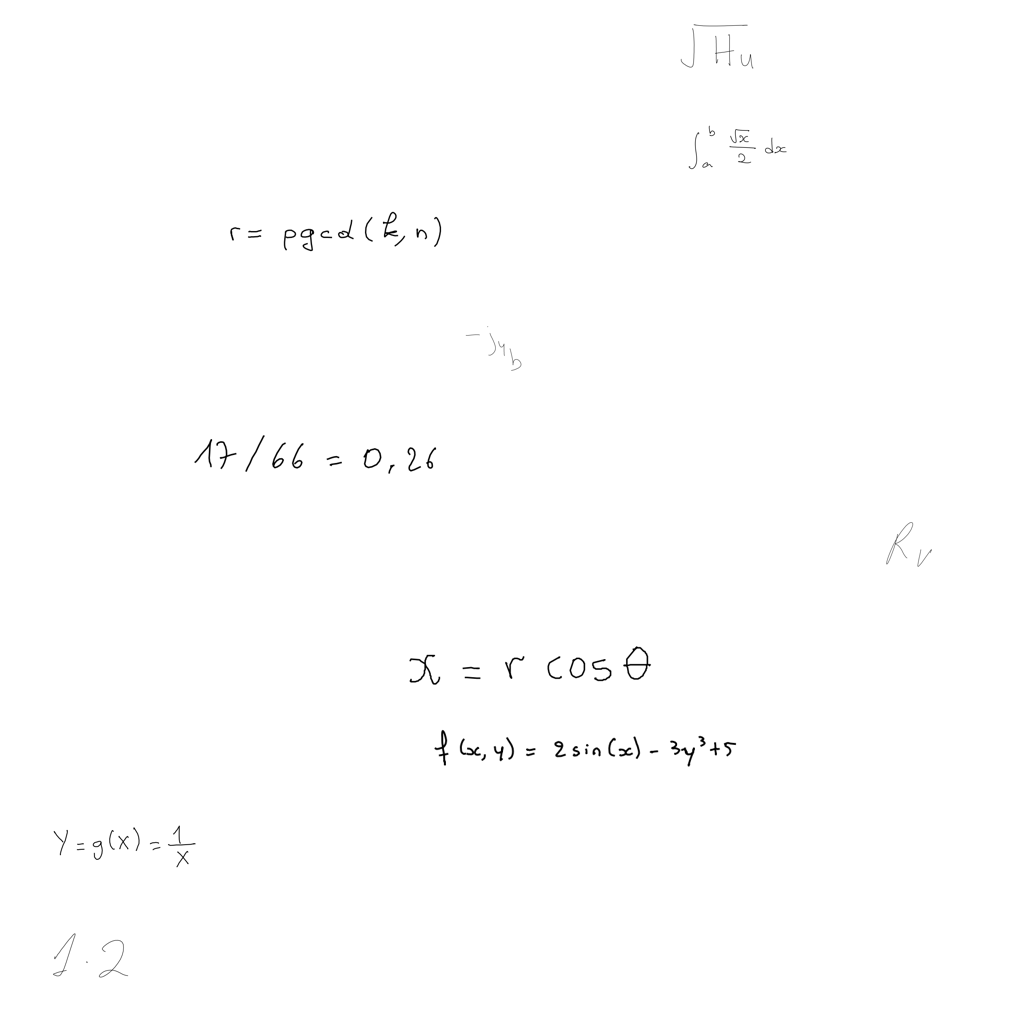 √Hu
∫_a^b √x/2 dx
r = pgcd(k, n)
-j4_b
17/66 = 0,26
R_V
x = r cos θ
f(x, y) = 2 sin(x) - 3y³+5
Y = g(x) = 1/x
1.2